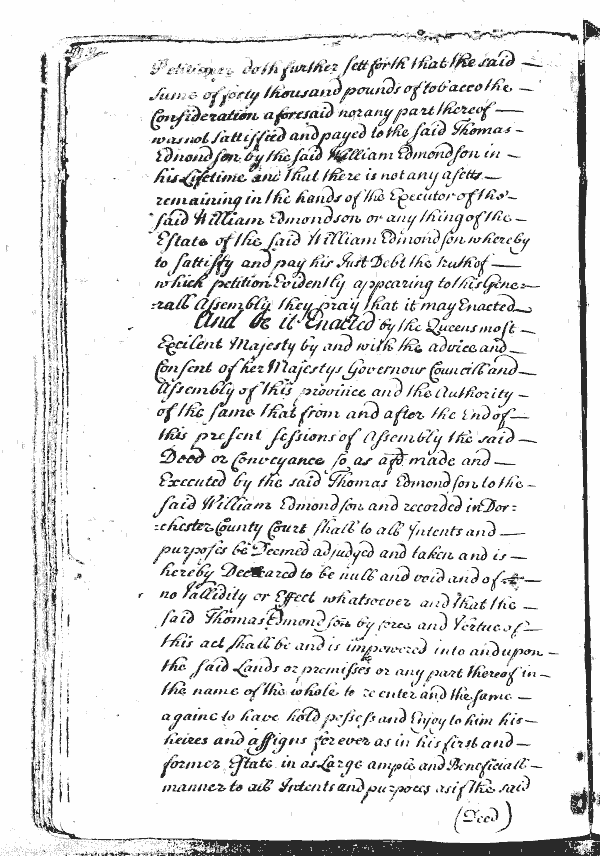 Petitioner doth further sett forth that the said —
sume of forty thousand pounds of tobacco the —
Consideration aforesaid nor any part thereof —
was not sattisfied and payed to the said Thomas —
Edmondson by the said William Edmondson in —
his Lifetime and that there is not any asetts —
remaining in the hands of the Executor of the —
said William Edmondson or any thing of the —
Estate of the said William Edmondson whereby
to sattisfy and pay his Just Debt the truth of —
which petition Evidently appearing to this Gene=
=rall Assembly they pray that it may Enacted —
And be it Enacted by the Queens most —
Excilent Majesty by and with the advice and —
Consent of her Majestys Governour Councill and —
Assembly of this province and the Authority —
of the same that from and after the End of —
this present sessions of Assembly the said —
Deed or Conveyance so as afd. made and —
Executed by the said Thomas Edmondson to the —
said William Edmondson and recorded in Dor=
=chester County Court shall to all Intents and —
purposes be Deemed adjudged and taken and is —
hereby Decleared to be null and void and of —
no Vallidity or Effect whatsoever and that the —
said Thomas Edmondson by force and Vertue of —
this act shall be and is impowered into and upon —
the said Lands or premisses or any part thereof in —
the name of the whole to reenter and the same —
againe to have hold possess and Enjoy to him his —
heires and assigns forever as in his first and —
former Estate in as Large ample and Beneficiall —
manner to all Intents and purposes as if the said
(Deed)